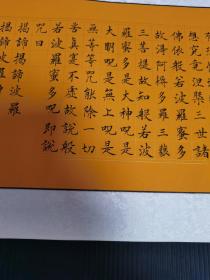 想究竟涅槃三世諸
佛依般若波羅蜜多
故得阿耨多羅三藐
三菩提故知般若波
羅蜜多是大神呪是
大明呪是無上呪是
無等等呪能除一切
苦真實不虛故說般
若波羅蜜多呪即說
呪曰
揭諦揭諦波羅
揭諦波羅